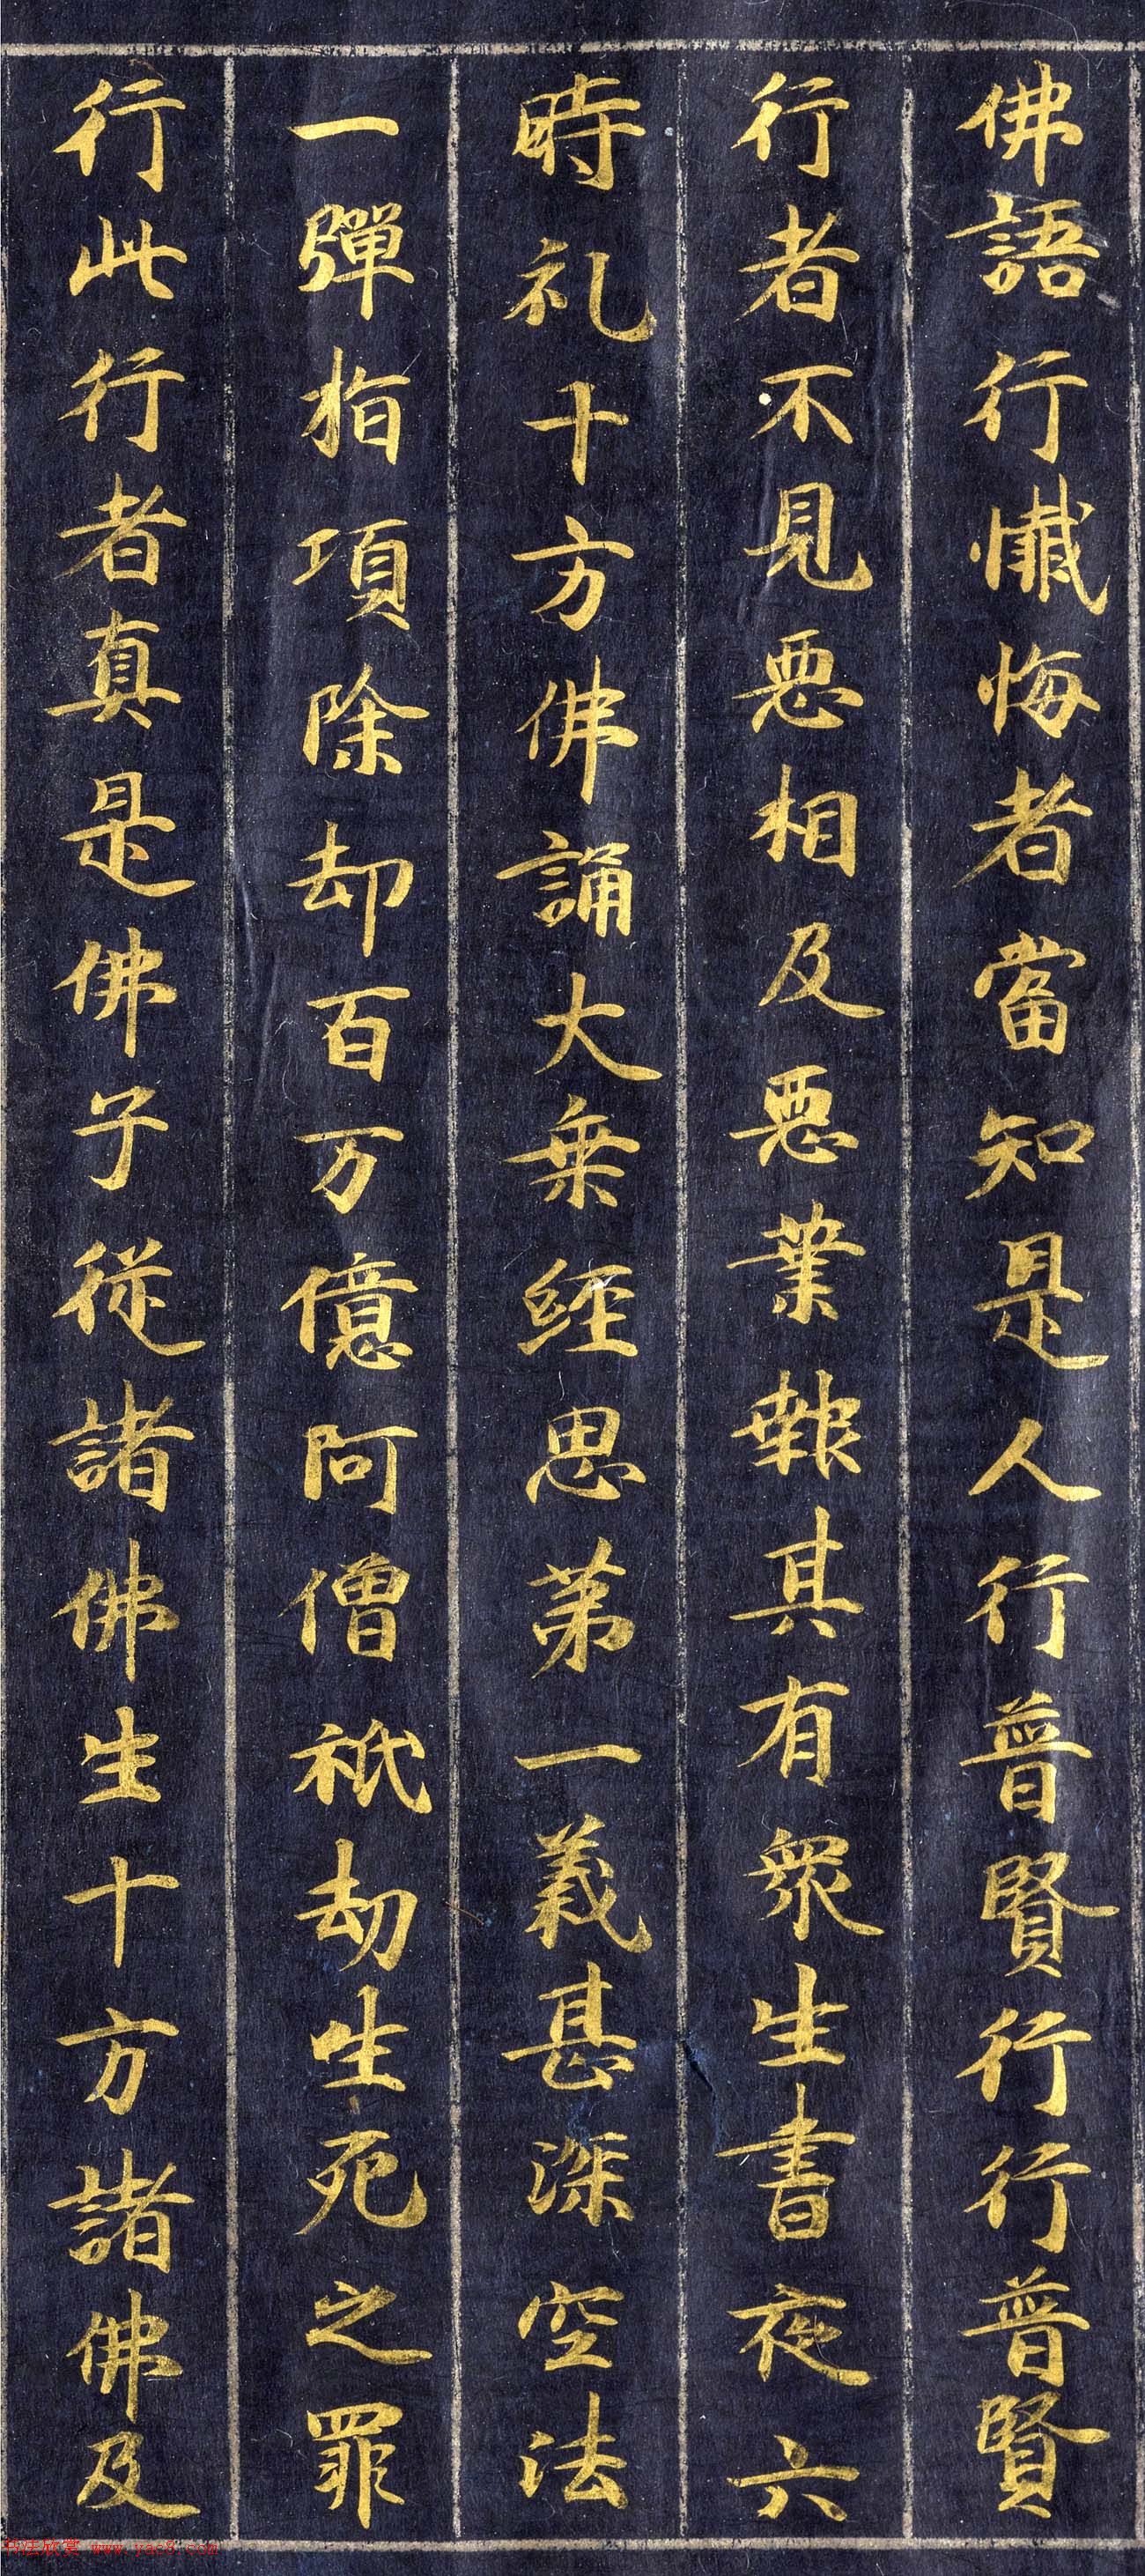 佛語行懺悔者當知是人行普賢行行普賢
行者不見惡相及惡業報其有眾生晝夜六
時礼十方佛誦大乗經思第一義甚深空法
一彈指項除却百万億阿僧祇劫生死之罪
行此行者真是佛子從諸佛生十方諸佛及
书法欣赏 www.yac8.com